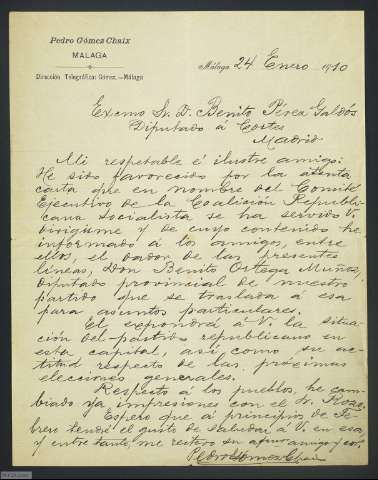 Pedro Gómez Chaix
MÁLAGA
Dirección Telegráfica: Gómez.—Málaga
Málaga 24 Enero 1910
Excmo Sr. D. Benito Pérez Galdós
Diputado á Cortes
Madrid
Mi respetable é ilustre amigo:
He sido favorecido por la atenta
carta que en nombre del Comité
Ejecutivo de la Coalición Republi-
cana Socialista se ha servido V.
dirigirme y de cuyo contenido he
informado á los amigos, entre
ellos, el dador de las presentes
líneas, Don Benito Ortega Muñoz,
Diputado provincial de nuestro
partido que se traslada á esa
para asuntos particulares.
El expondrá á V. la situa-
ción del partido republicano en
esta capital, así como su ac-
titud respecto de las próximas
elecciones generales.
Respecto á los pueblos, he cam-
biado ya impresiones con el Sr.
Espero que á principios de Fe-
brero tendré el gusto de saludar á V. en esa
y entre tanto, me reitero su afmo amigo y cor.
Pedro Gomez Chaix